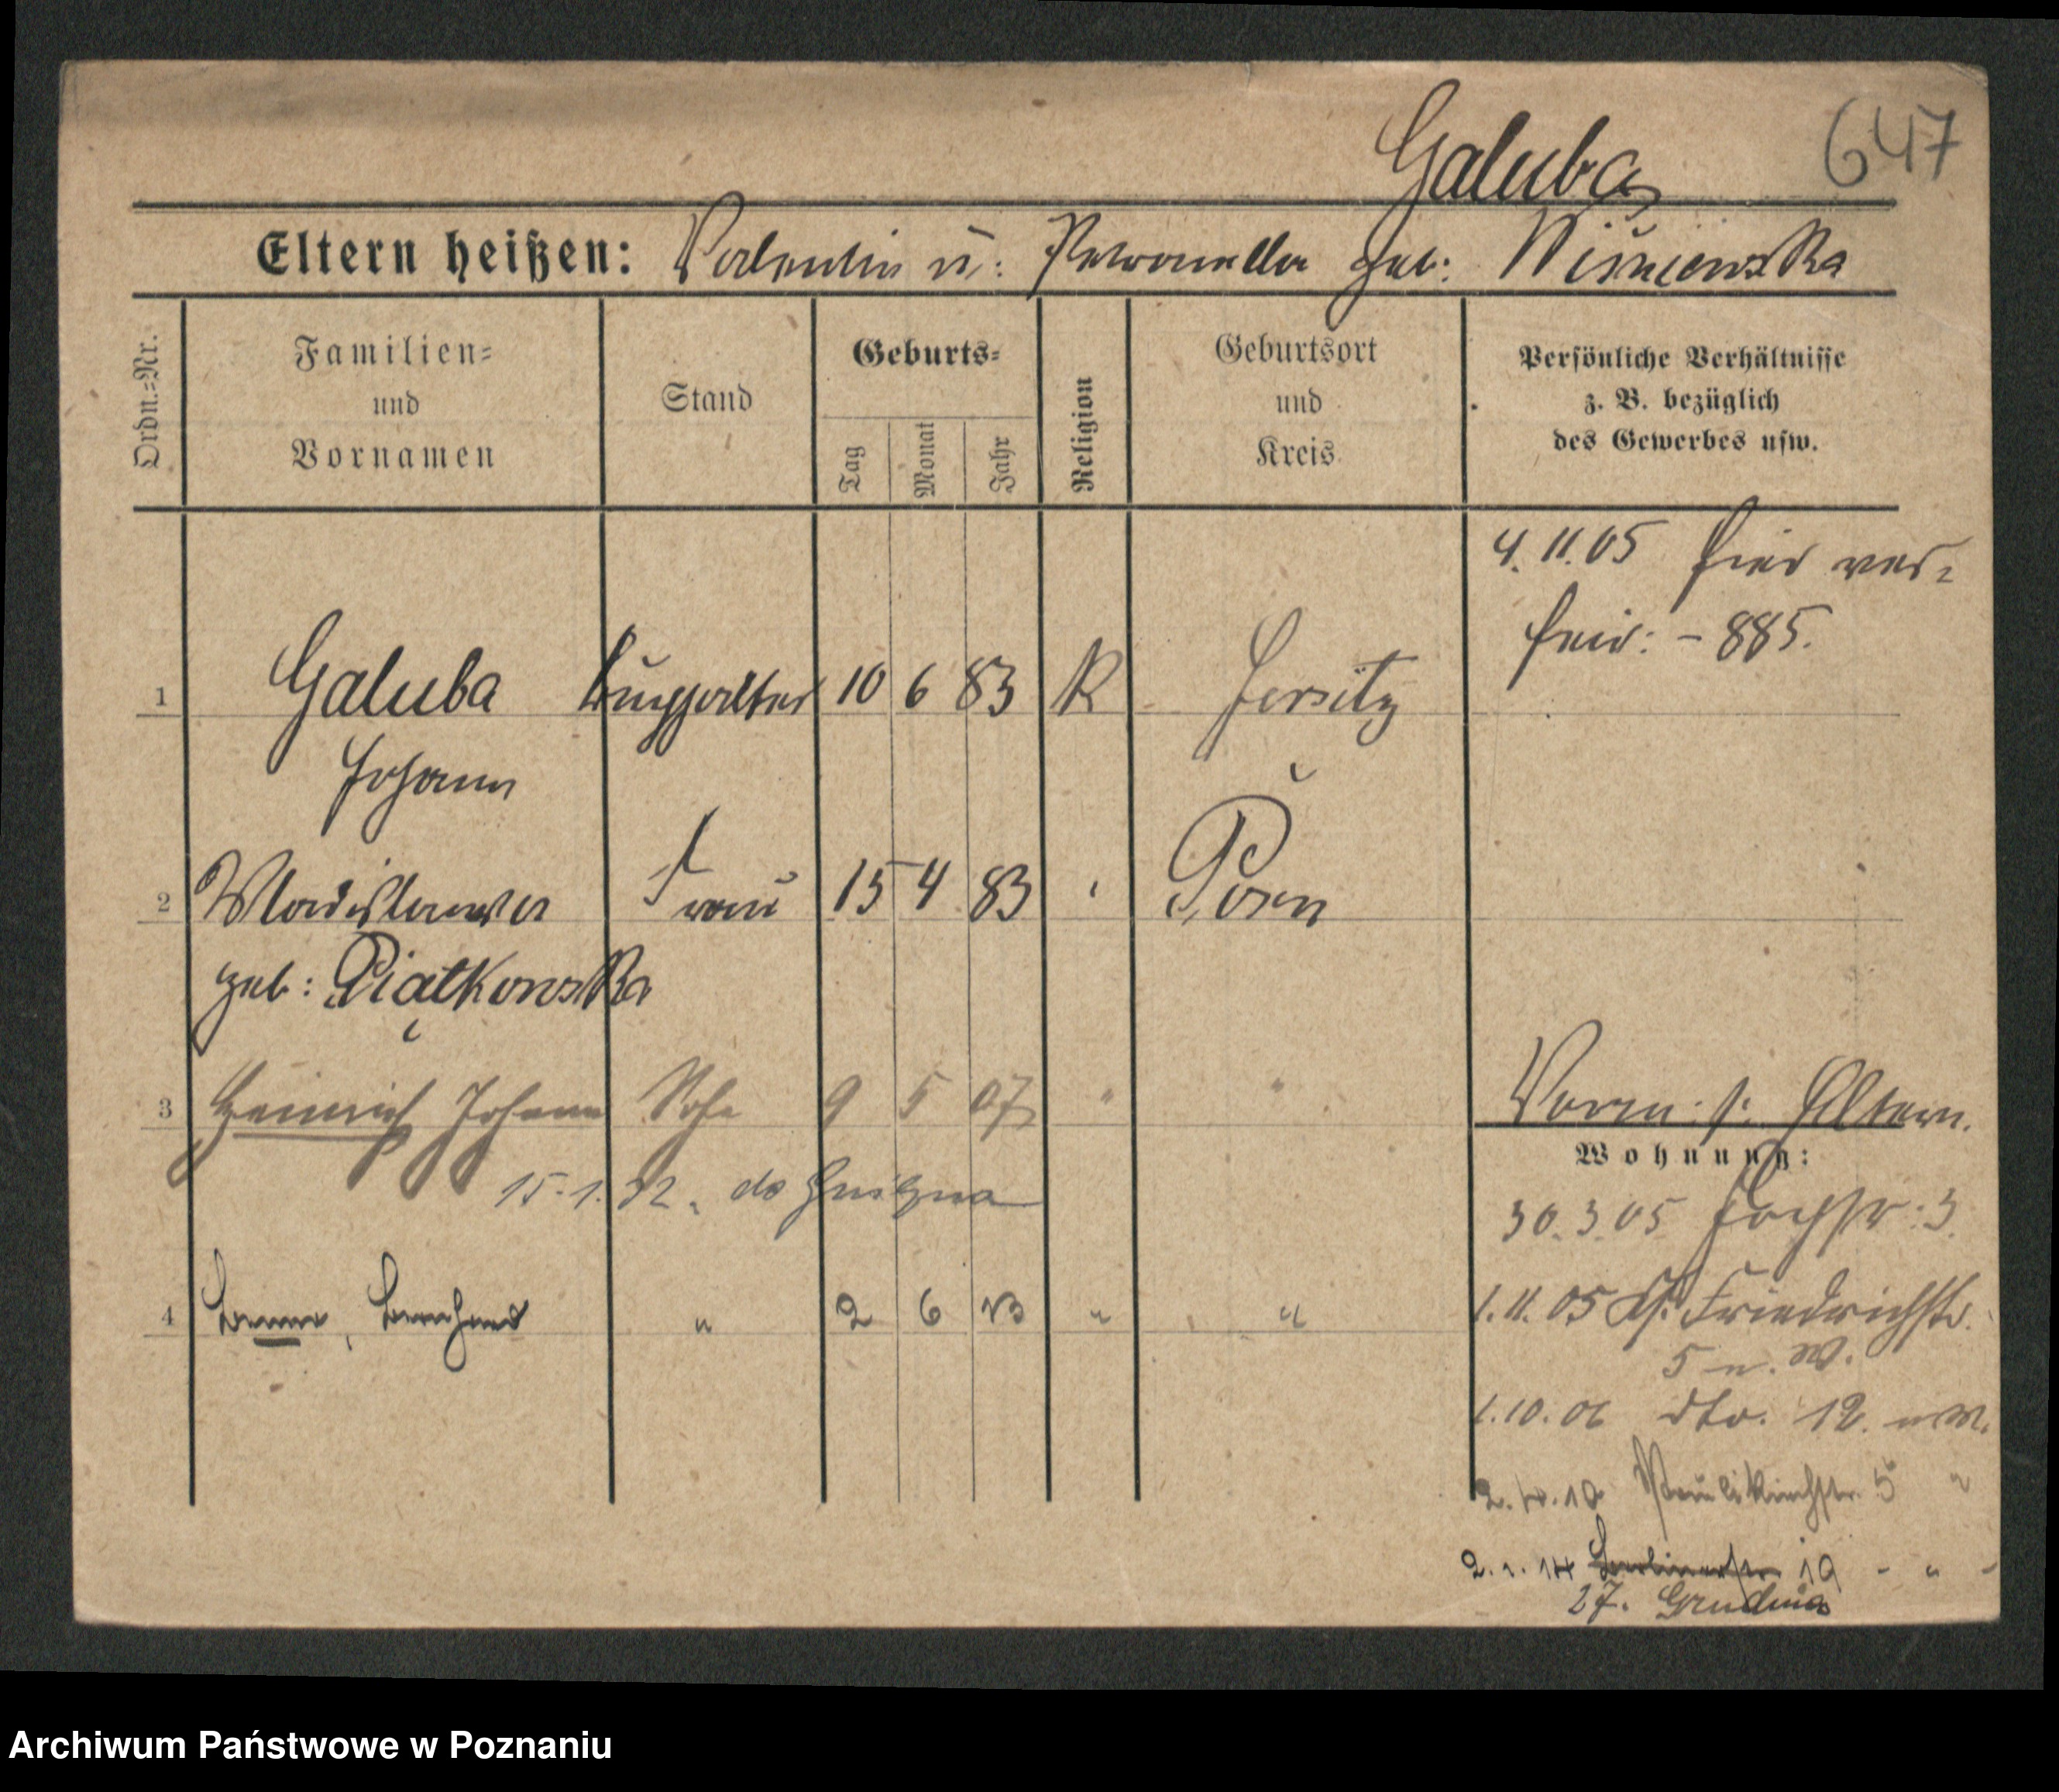 Galuba 647
Eltern heißen: Valentin u. Petronella geb: Wiśniewska
Ordn.=Nr. Familien= und Vornamen Stand Geburts= Tag Monat Jahr Religion Geburtsort und Kreis Persönliche Verhältnisse z. B. bezüglich des Gewerbes usw.
4.11.05 hier ver=
heir: - 885.
1 Galuba Buchhalter 10 6 83 K Jersitz
Johann
2 Wladislawa Frau 15 4 83 Posen
geb: Piątkowska
3 Heinrich Johann Sohn 9 5 07 " " Vorm: s. Eltern.
Wohnung:
15.1.32. do Gniezna
30.3.05 Hochstr: 3.
4 Benno, Bernhard " 2 6 13 " "
1.11.05 Gr. Friedrichstr.
5 n. W.
1.10.06 dto. 12. n W.
2.4.10 Paulikirchstr. 5 "
2.1.14 Berlinerstr 19 - " -
27. Grudnia
Archiwum Państwowe w Poznaniu